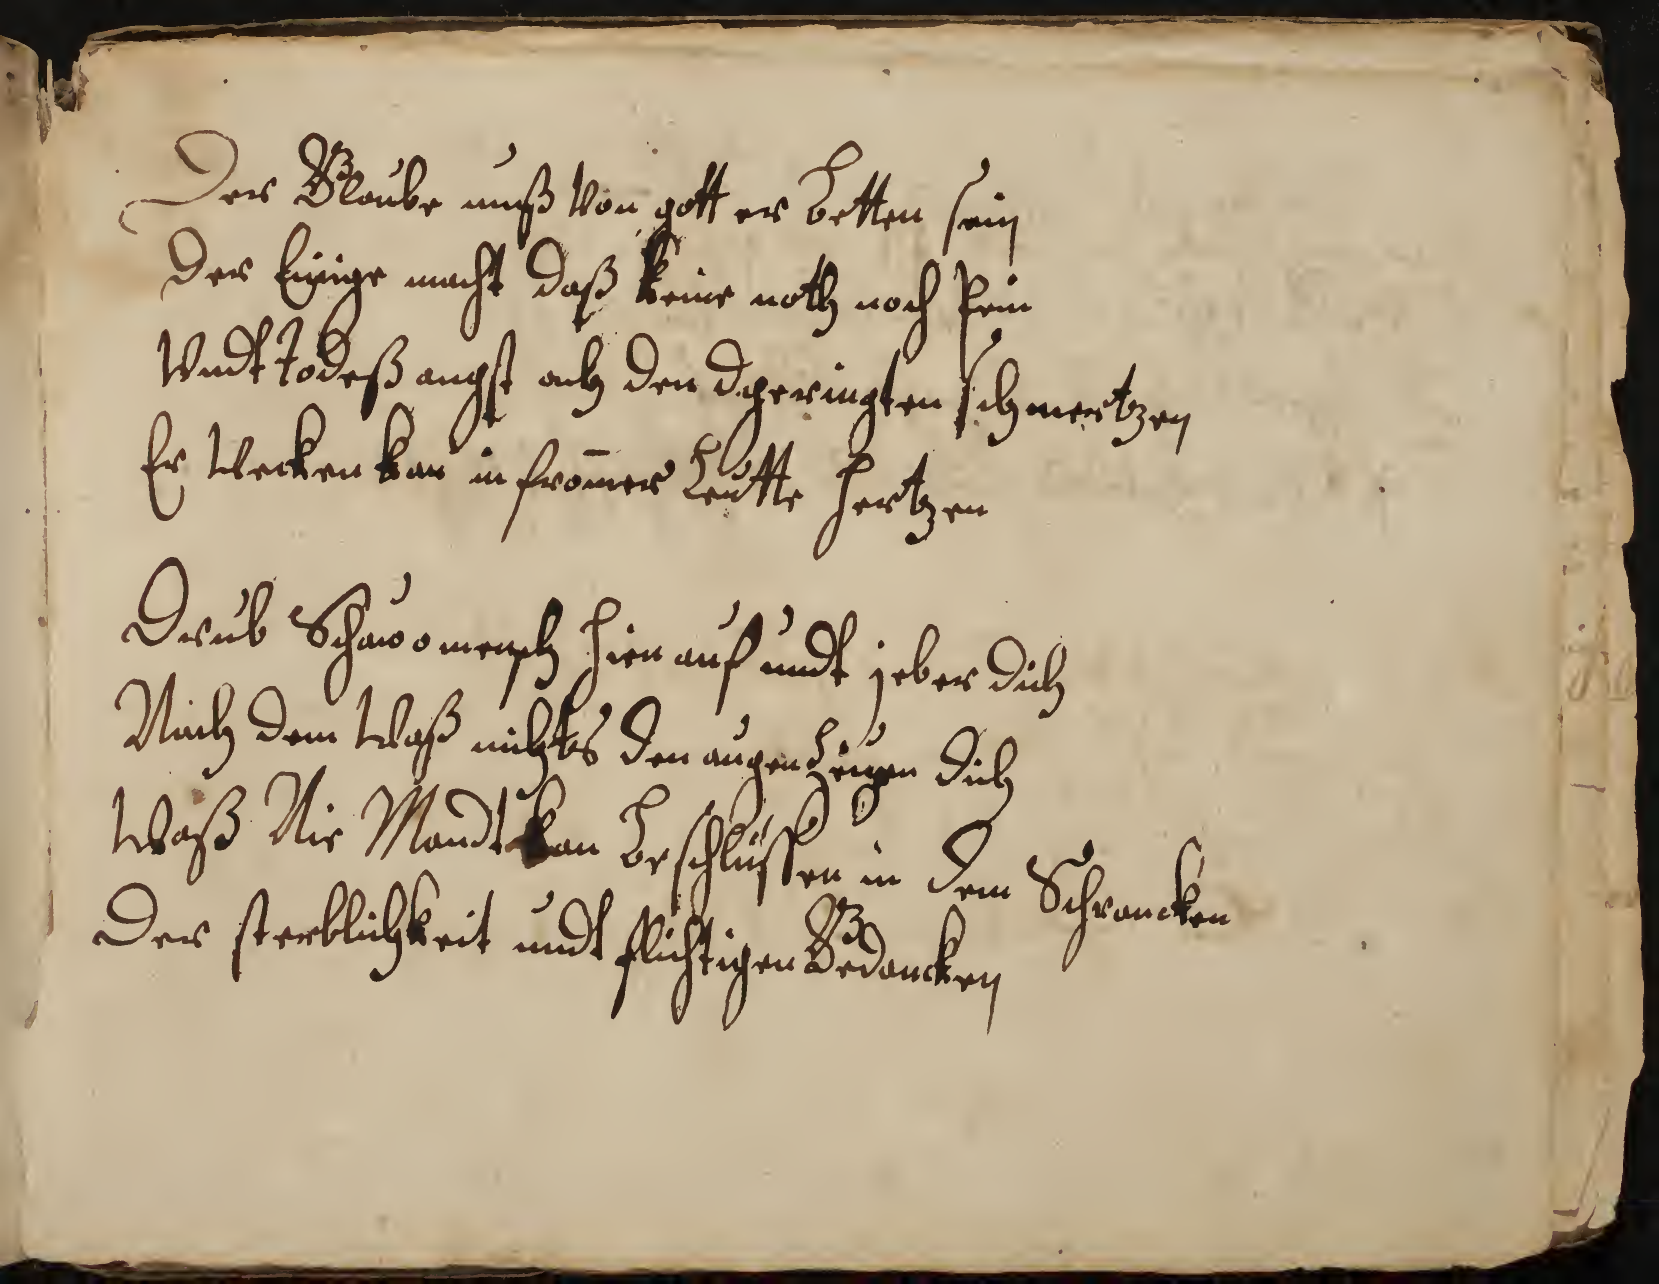 Der Glaube muß Von gott er betten sein
der Einige macht daß keine noth noch Pein
Vndt Todeß angst ach den geringten schmertzen
Er Wecken kan in from̄er Leutte hertzen
Drub Schaw o mensch hierauf undt jeber dich
Nach dem Waß nichts den augen Zeigen dich
Waß Nie Mandt kan beschlüssen in dem Schrancken
Der sterblichkeit undt flichtigen Gedancken